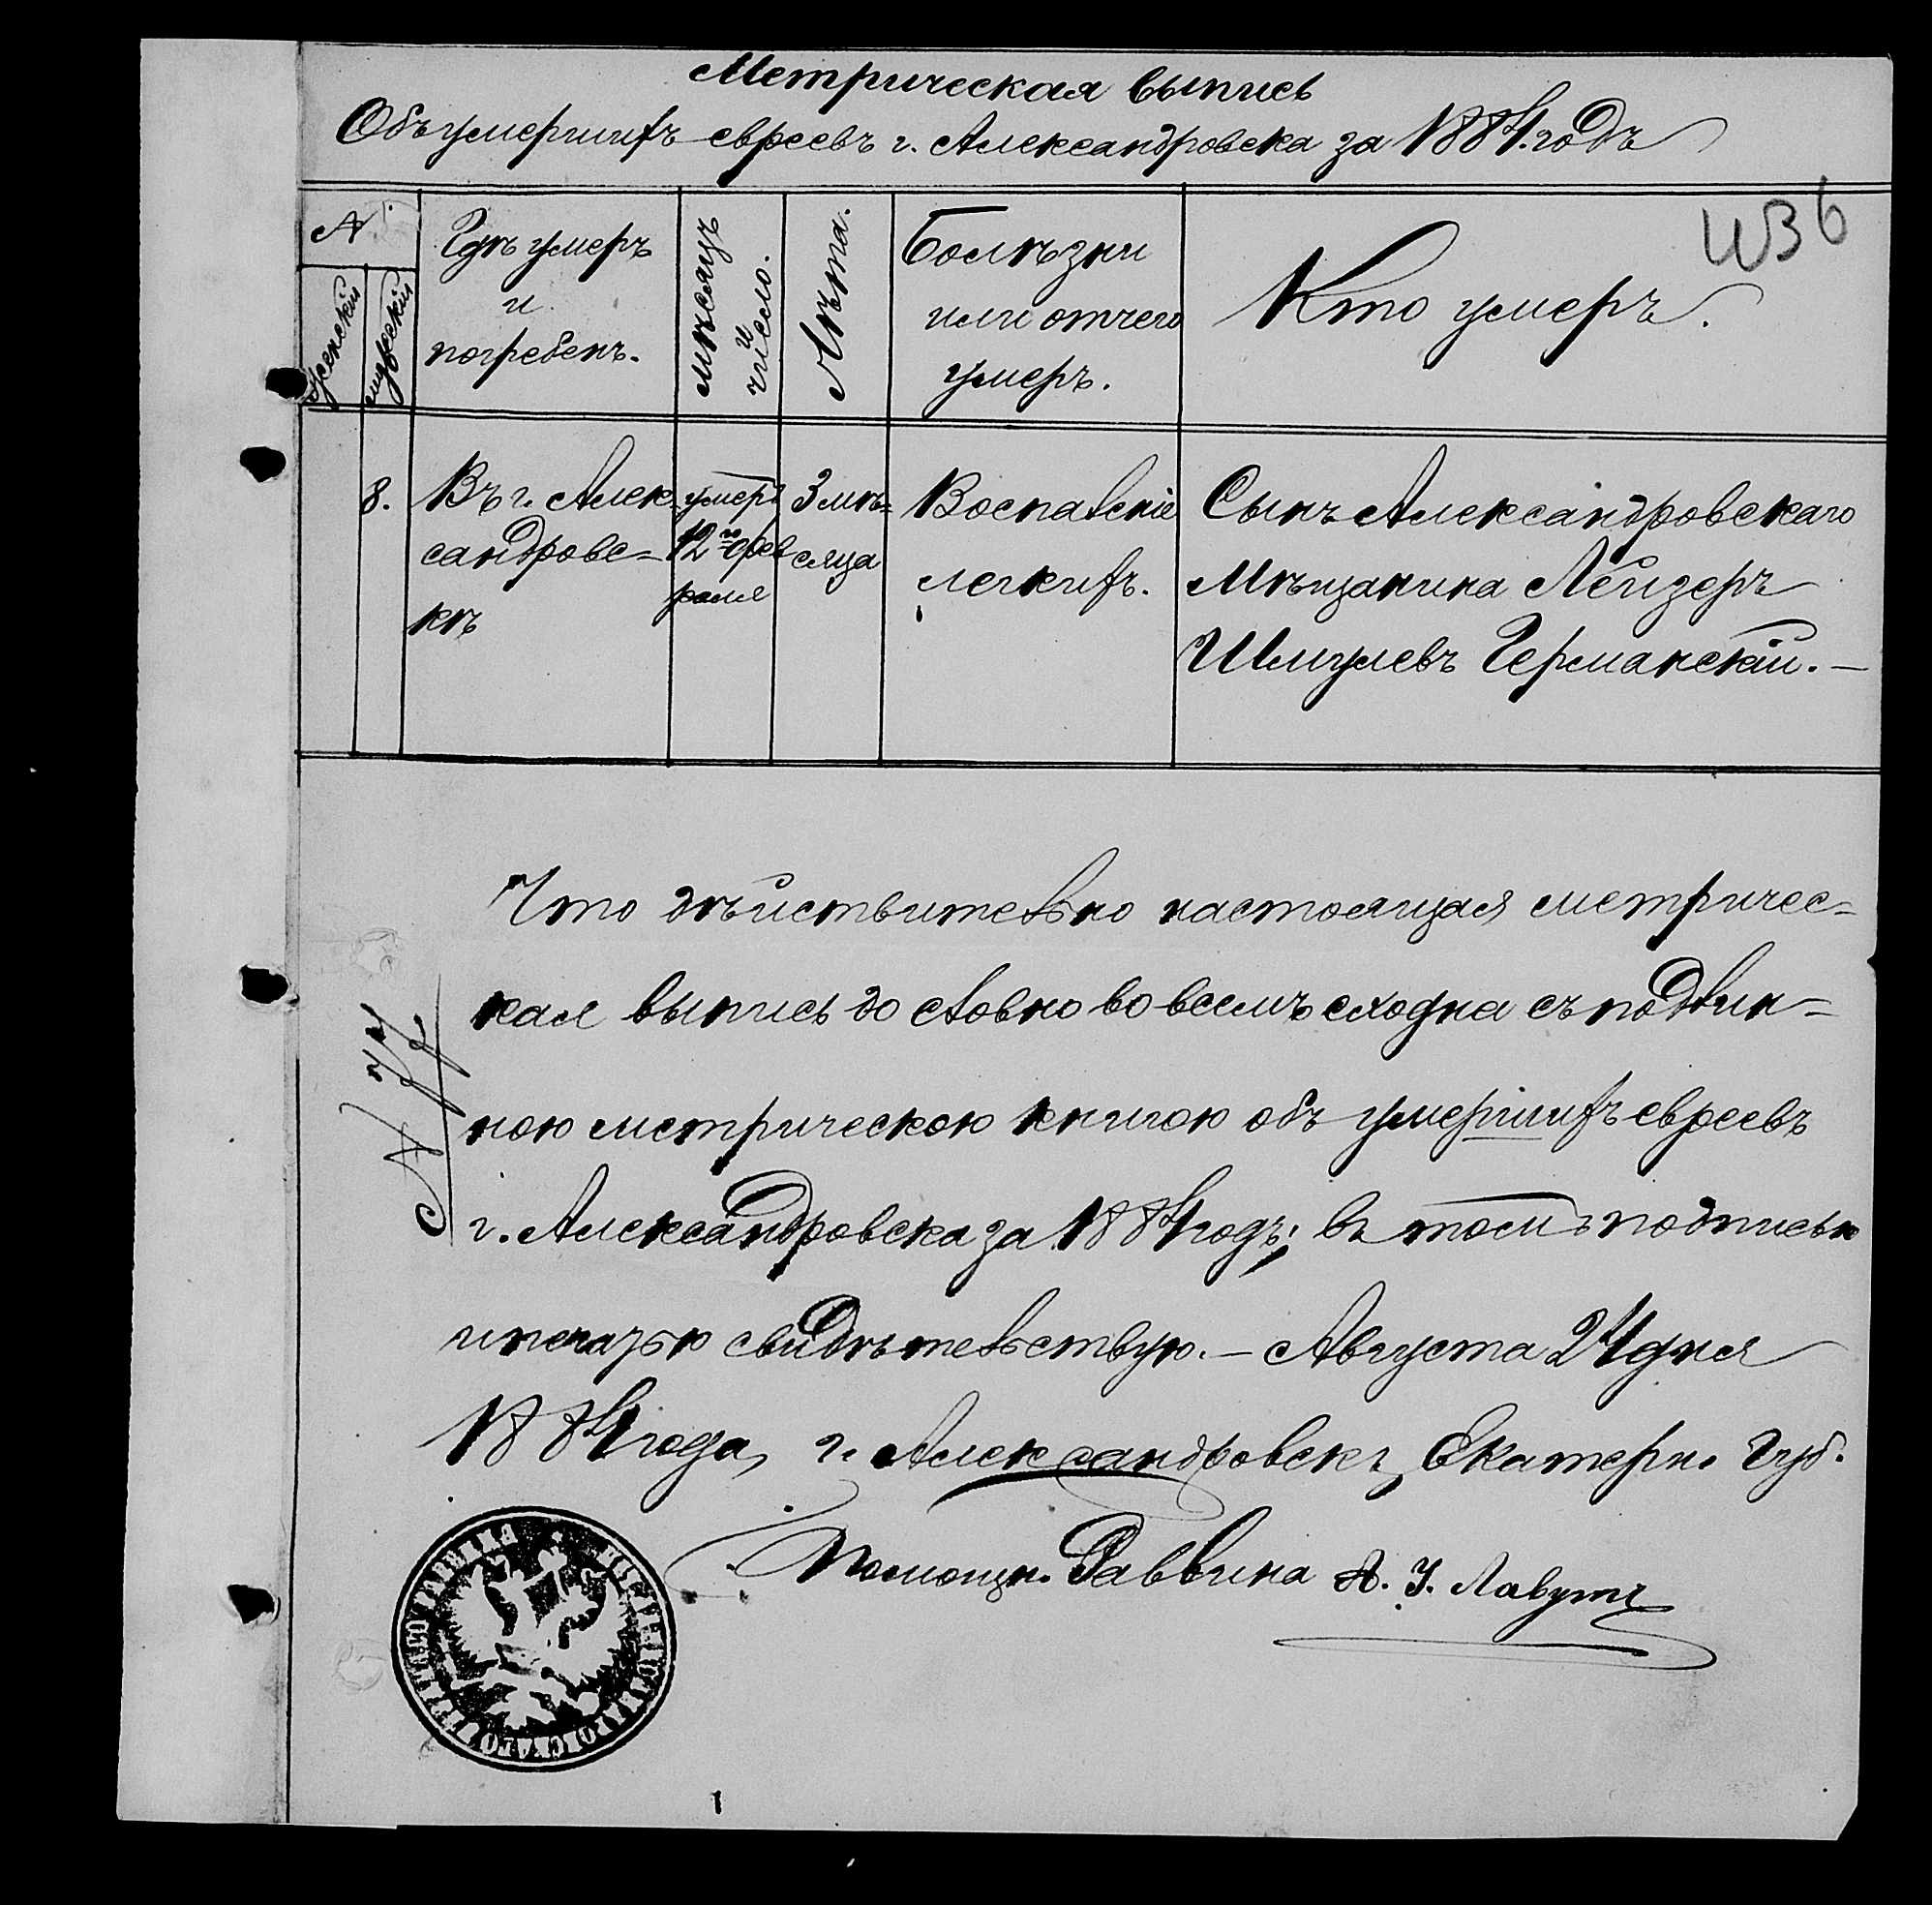 Метрическая выпись
Объ умершихъ евреевъ г. Александровска за 1884. годъ
№
женскій
мужескій
Гдѣ умеръ
и
погребенъ.
мѣсяцъ
и
число.
Лѣта.
Болѣзни
или отчего
умеръ.
Кто умеръ.
8.
Въ г. Алек-
сандровс=
кѣ
умеръ
12го фев
раля
3 мѣ=
сяца
Воспаленіе
легкихъ.
Сынъ Александровскаго
Мѣщанина Лейзеръ
Шмулевъ Германскій. —
Что дѣйствительно настоящая метричес=
кая выпись до словно во всемъ сходна съ подлин=
ною метрическою книгою объ умершихъ евреевъ
г. Александровска за 1884 годъ; въ томъ подписью
и печатью свидѣтельствую. — Августа 24 дня
1884 года, г. Александровскъ, Екатерин. Губ.
Помощн. Раввина А. У. Лавутъ
№ 77